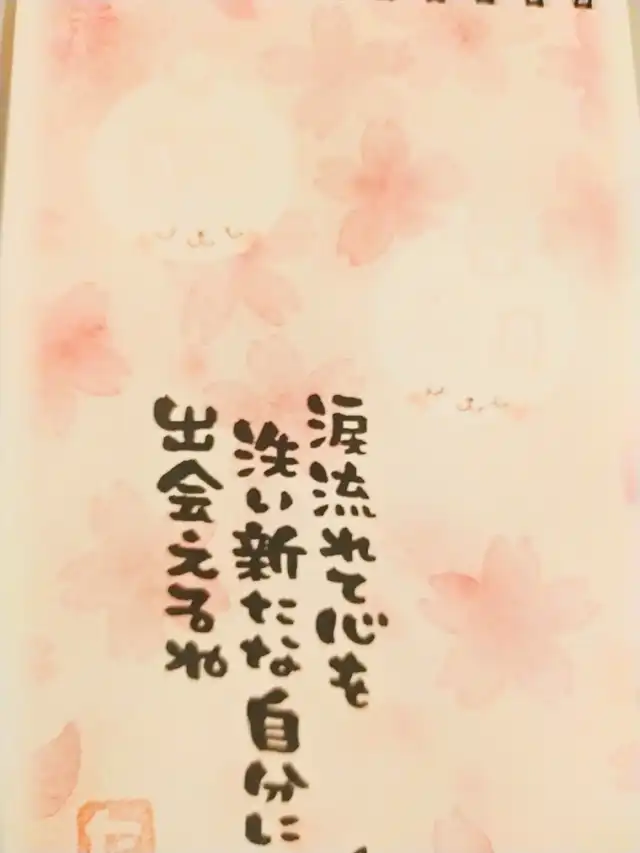 涙流れて心を
洗い新たな自分に
出会えるね